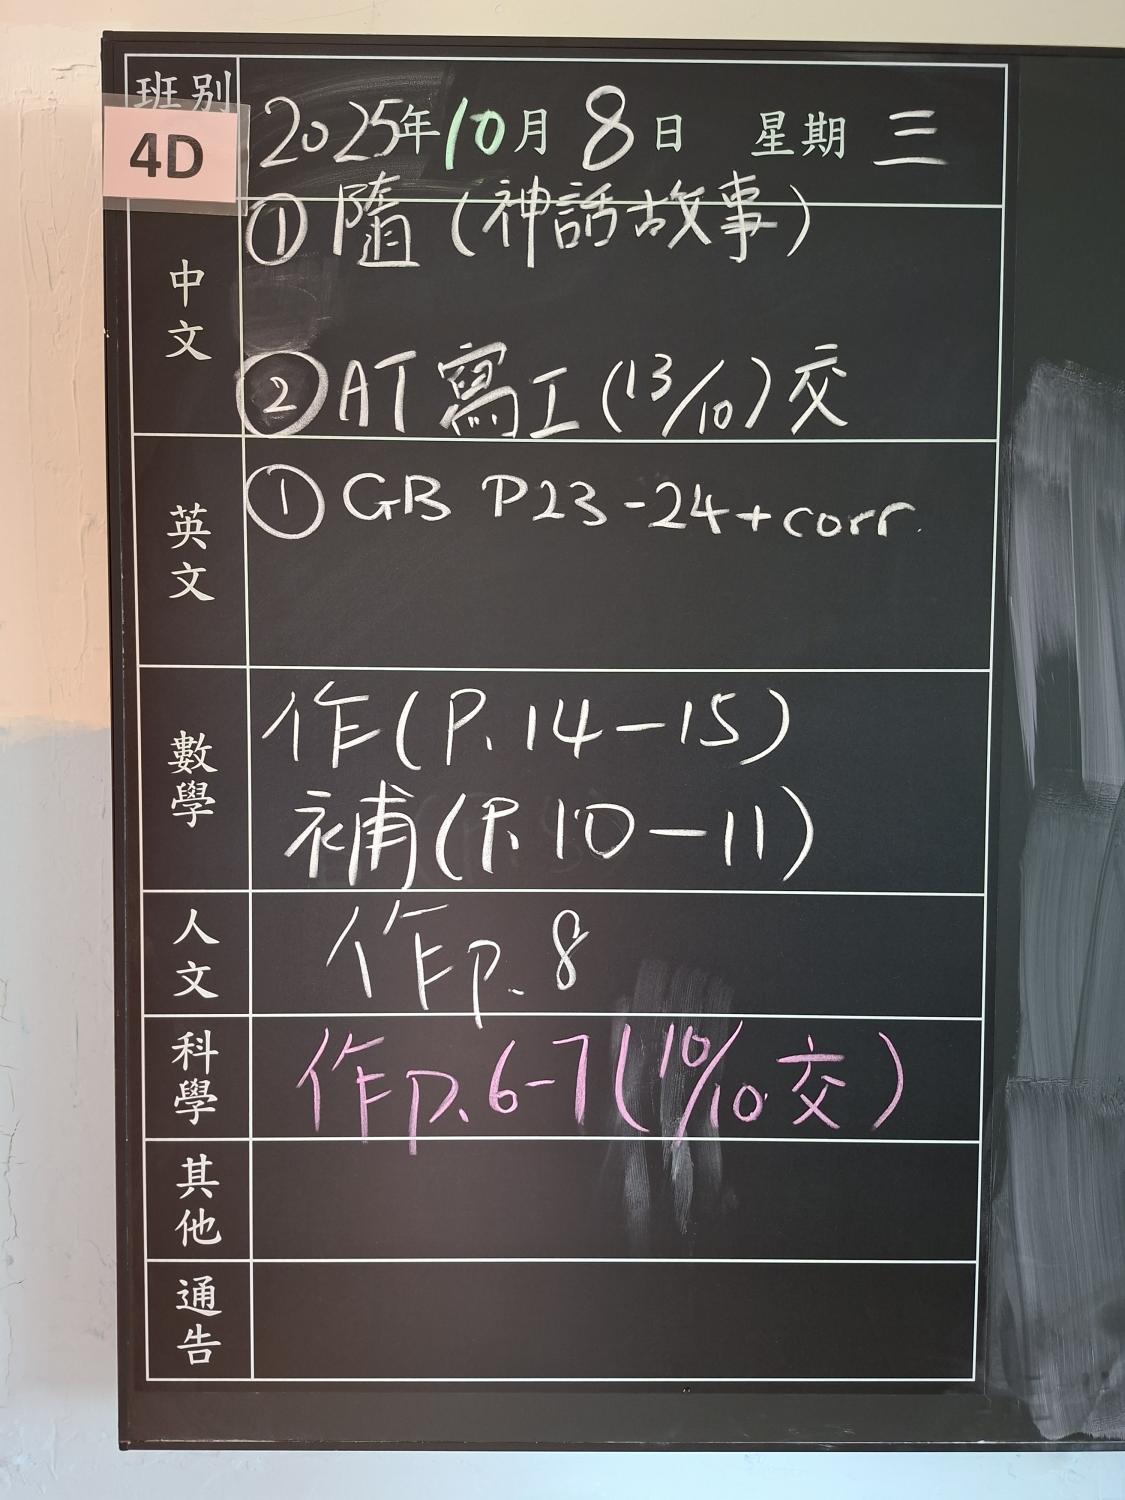 班別
4D
2025年10月8日 星期三
中文
① 隨（神話故事）
② AT 寫工 (13/10) 交
英文
① GB P23-24+corr.
數學
作(P.14-15)
補(P.10-11)
人文
作p.8
科學
作p.6-7(10/10交)
其他
通告